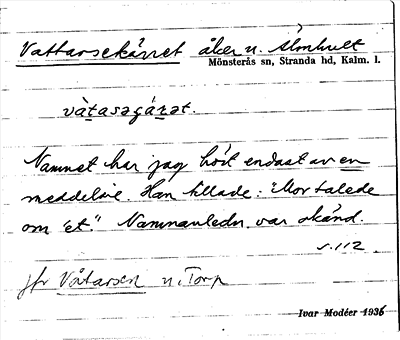 Vattarsekärret åker u. Älmhult
Mönsterås sn, Stranda hd, Kalm. l.
vàtasəgárət.
Namnet har jag hört endast av en
meddelare. Han tillade: "Mor talede
om 'et." Namnanledn. var okänd.
s. 112
jfr Våtarsen u. Torp
Ivar Modéer 1936